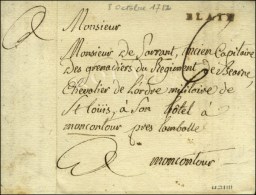 8 octobre 1782
BLAIN
Monsieur
Monsieur De Sarrant, ancien Capitaine
Des grenadiers du Regiment de Bearne
Chevalier de Lordre militaire de
St Louis, a Son hôtel a
moncontour pres Lamballe
moncontour